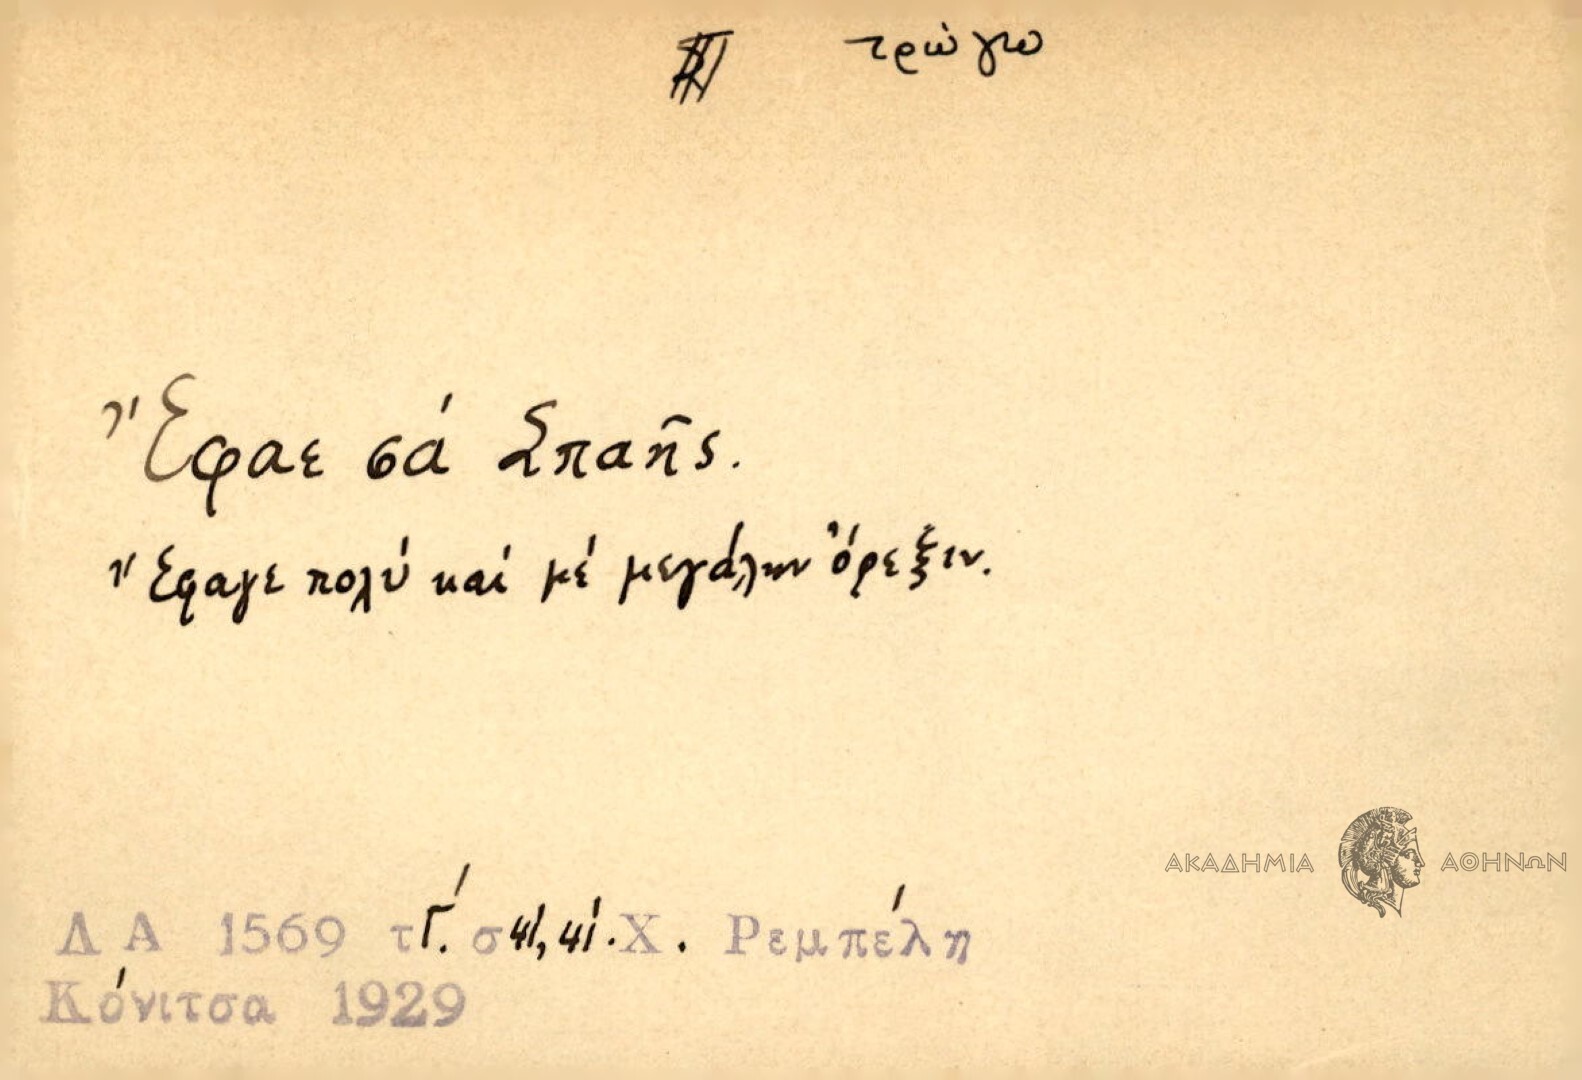 τρώγω
Ἔφαε σά Σπαῆς.
Ἔφαγε πολύ καί μέ μεγάλην ὄρεξιν.
ΑΚΑΔΗΜΙΑ ΑΘΗΝΩΝ
Δ Α 1569 τ Γ΄. σ 41, 41. Χ. Ρεμπέλη
Κόνιτσα 1929